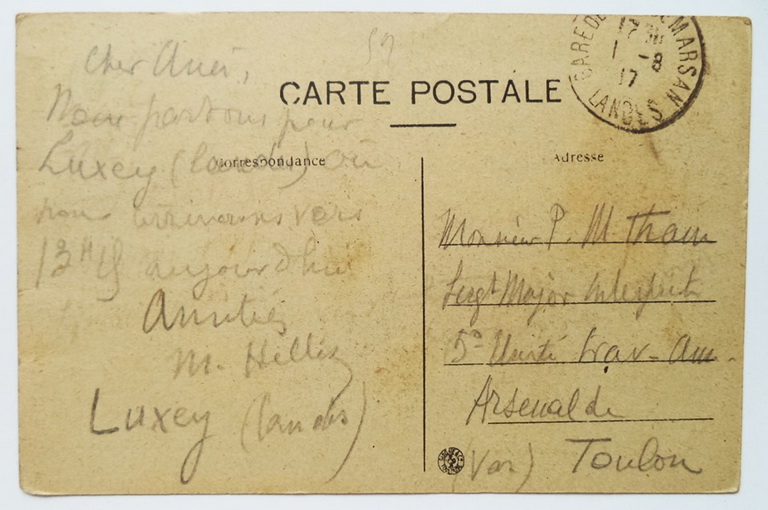 52
CARTE POSTALE
Correspondance
Cher Ami,
Nous partons pour
Luxey (Landes) où
nous arriverons vers
13H15 aujourd'hui
Amitiés
M.
Luxey (Landes)
GARE DE MARSAN
1 - 8
17
LANDES
Adresse
Monsieur P. M. Tham
Sergt Major Interprète
5e Unité Trav - Am.
Arsenal de
(Var) Toulon